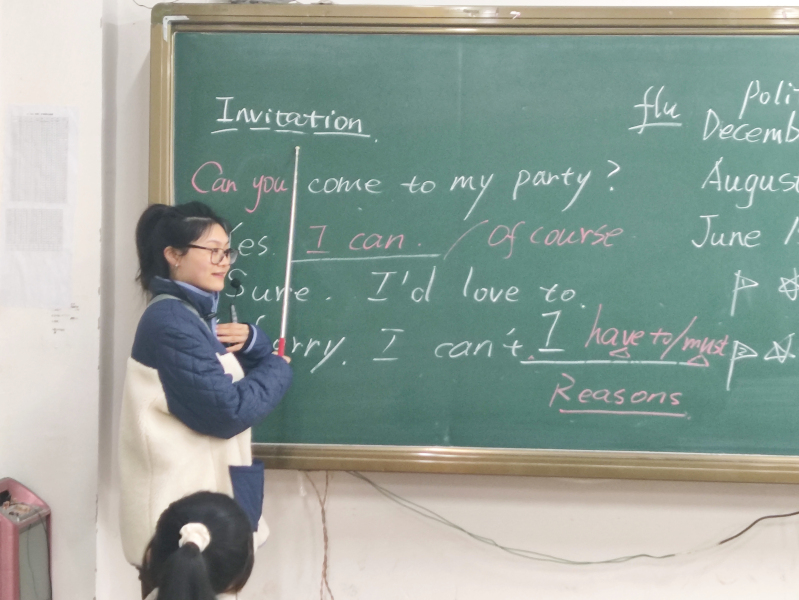 Invitation.
Can you come to my party?
es. I can. / Of course
Sure. I'd love to.
rry. I can't. I have to/must
Reasons
flu
Polit
Decemb
August
June 1
P
P